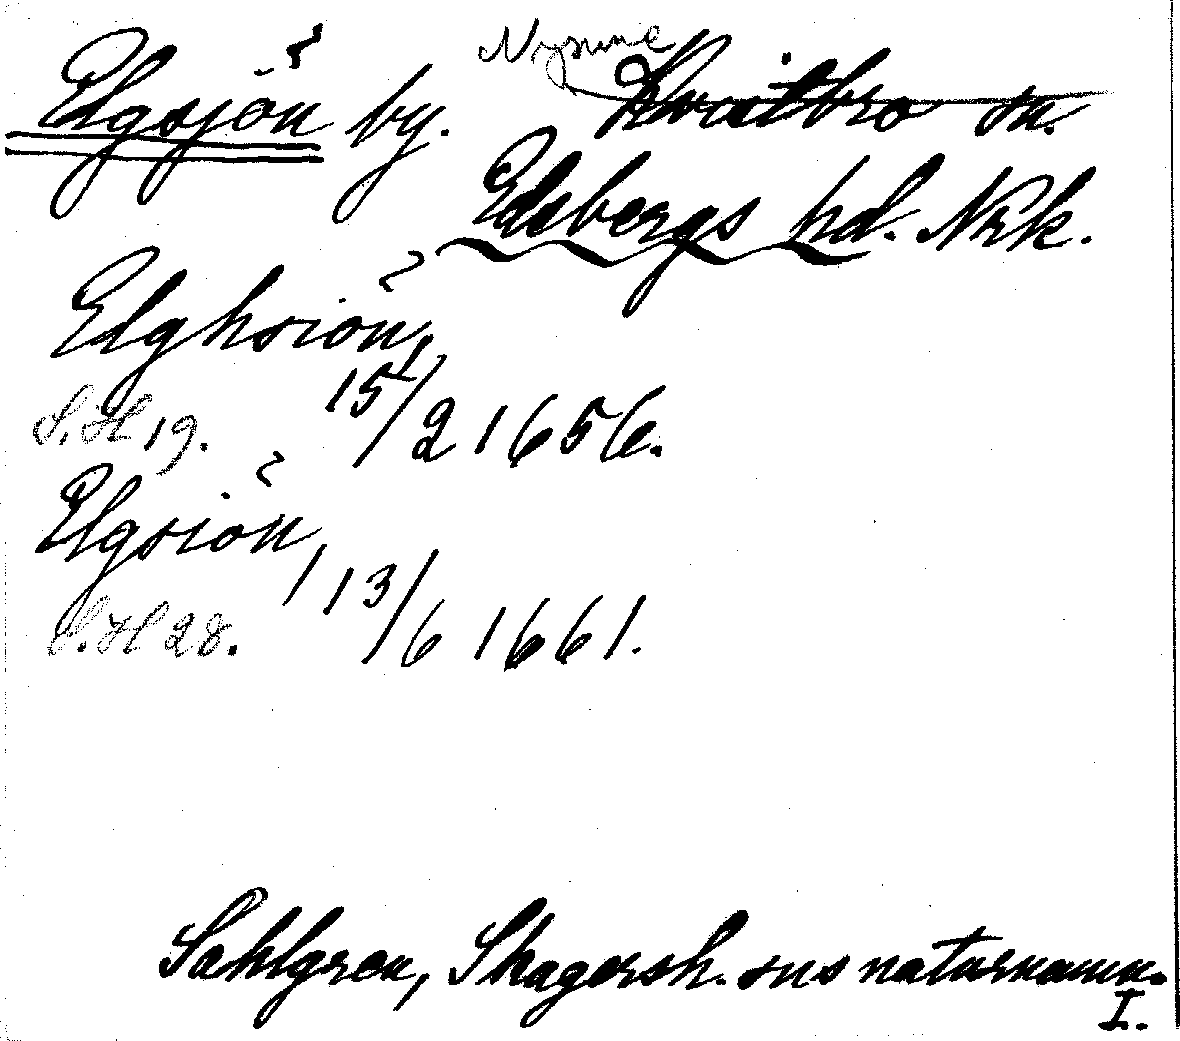 Elgsjön by. Nysund Kvistbro sn.
Edsbergs hd. Nrk.
Elghsiön,
S.H 19. 15/2 1656.
Elgsiön,
S.H 28. 13/6 1661.
Sahlgren, Skagersh. sns naturnamn.
I.